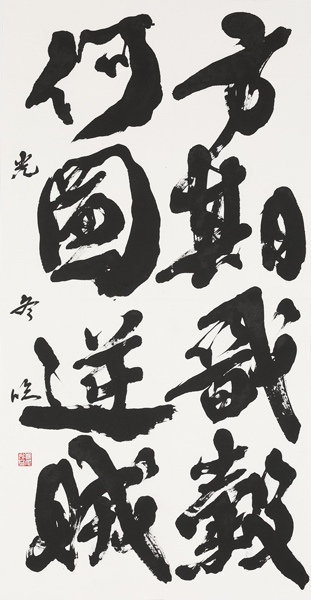 方期戩穀
何圖逆賊
光 臨